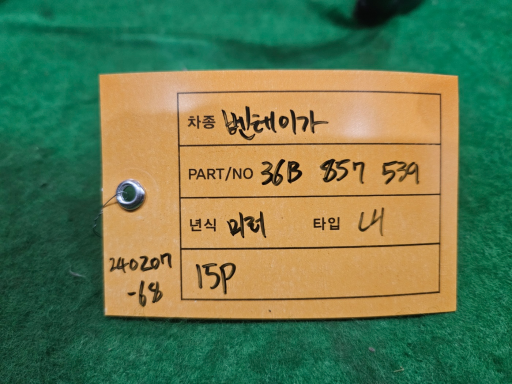 차종 벤테이가
PART/NO 36B 857 539
년식 미러 타입 LH
15P
240207
-68